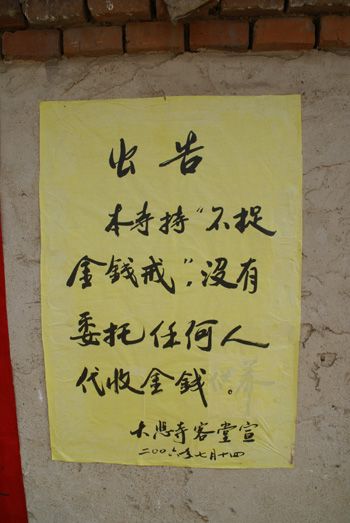 出告
本寺持“不捉
金錢戒”，没有
委托任何人
代收金錢。
大悲寺客堂宣
二00六年七月十四